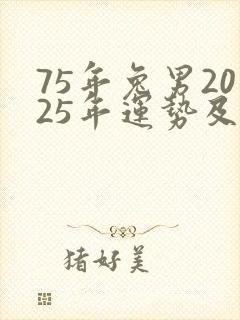 75年兔男20
25年運勢及
猪好美